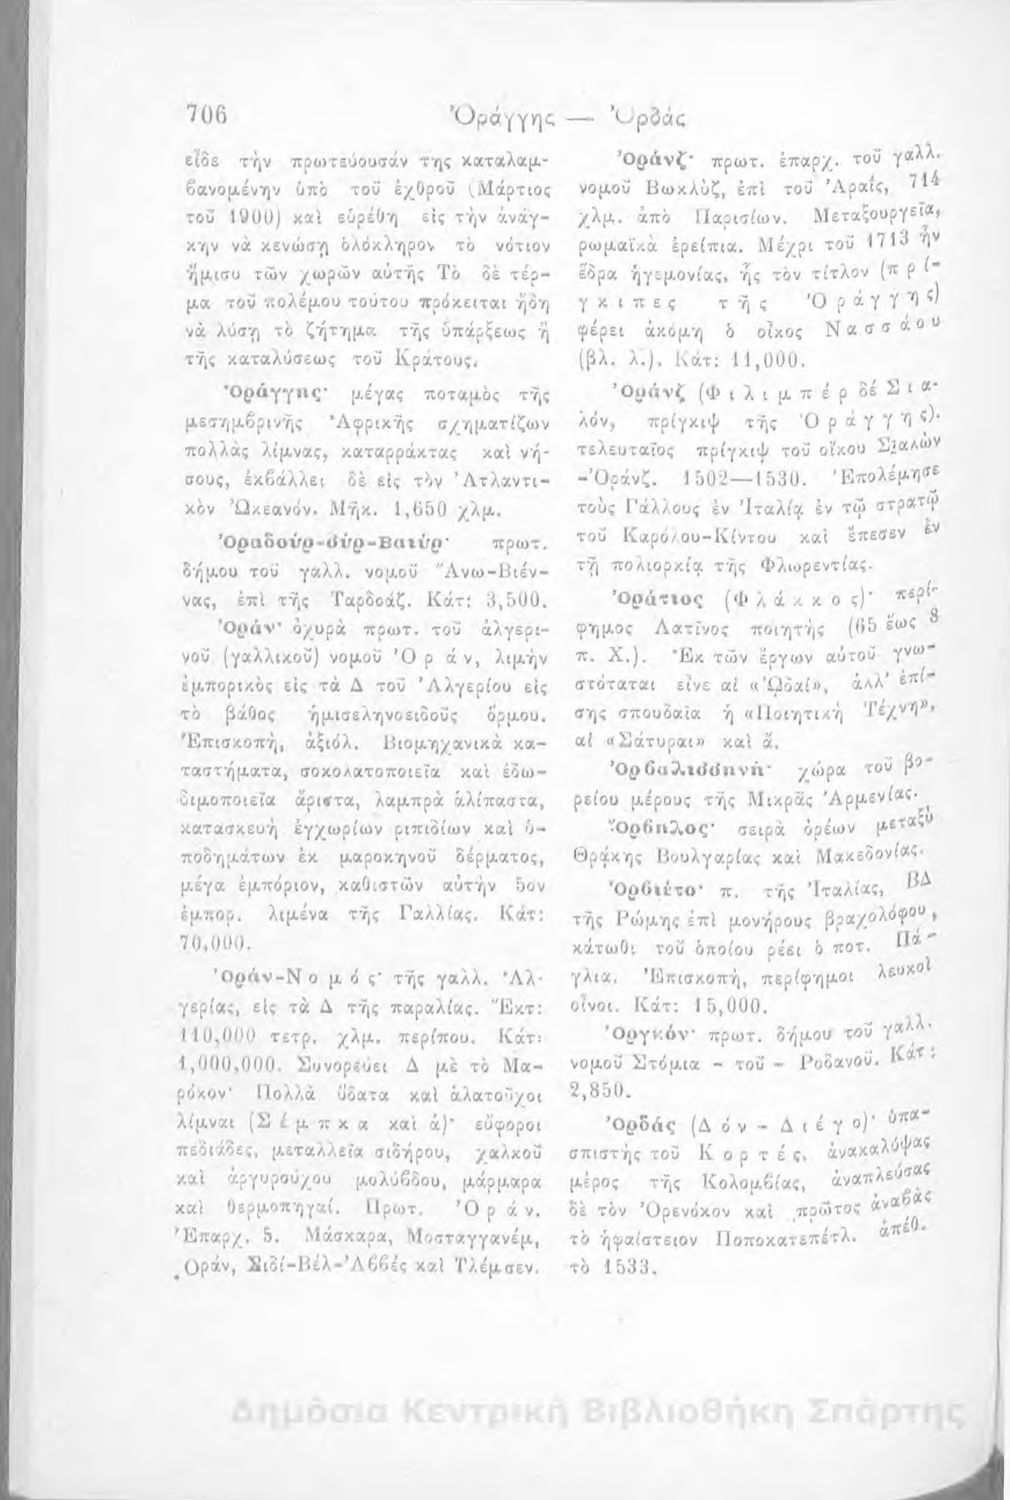 706
Ὀράγγης — Ὀρδάς
εἶδε τὴν πρωτεύουσάν της καταλαμ-
βανομένην ὑπὸ τοῦ ἐχθροῦ (Μάρτιος
τοῦ 1900) καὶ εὑρέθη εἰς τὴν ἀνάγ-
κην νὰ κενώσῃ ὁλόκληρον τὸ νότιον
ἥμισυ τῶν χωρῶν αὑτῆς Τὸ δὲ τέρ-
μα τοῦ πολέμου τούτου πρόκειται ἤδη
νὰ λύσῃ τὸ ζήτημα τῆς ὑπάρξεως ἢ
τῆς καταλύσεως τοῦ Κράτους.
Ὀράγγης· μέγας ποταμὸς τῆς
μεσημβρινῆς Ἀφρικῆς σχηματίζων
πολλὰς λίμνας, καταρράκτας καὶ νή-
σους, ἐκβάλλει δὲ εἰς τὸν Ἀτλαντι-
κὸν Ὠκεανόν. Μῆκ. 1,650 χλμ.
Ὁραδοὺρ-σὺρ-Βαιὺρ· πρωτ.
δήμου τοῦ γαλλ. νομοῦ Ἄνω-Βιέν-
νας, ἐπὶ τῆς Ταρδοάζ. Κάτ: 3,500.
Ὀράν· ὀχυρὰ πρωτ. τοῦ ἀλγερι-
νοῦ (γαλλικοῦ) νομοῦ Ὀράν, λιμὴν
ἐμπορικὸς εἰς τὰ Δ τοῦ Ἀλγερίου εἰς
τὸ βάθος ἡμισεληνοειδοῦς ὅρμου.
Ἐπισκοπή, ἀξιόλ. Βιομηχανικὰ κα-
ταστήματα, σοκολατοποιεῖα καὶ ἐδω-
διμοποιεῖα ἄριστα, λαμπρὰ ἁλίπαστα,
κατασκευὴ ἐγχωρίων ριπιδίων καὶ ὑ-
ποδημάτων ἐκ μαροκηνοῦ δέρματος,
μέγα ἐμπόριον, καθιστῶν αὐτὴν 5ον
ἐμπορ. λιμένα τῆς Γαλλίας. Κάτ:
70,000.
Ὀράν-Νομός· τῆς γαλλ. Ἀλ-
γερίας, εἰς τὰ Δ τῆς παραλίας. Ἔκτ:
110,000 τετρ. χλμ. περίπου. Κάτ:
1,000,000. Συνορεύει Δ μὲ τὸ Μα-
ρόκον· Πολλὰ ὕδατα καὶ ἁλατοῦχοι
λίμναι (Σέμπκα καὶ ἄ)· εὔφοροι
πεδιάδες, μεταλλεῖα σιδήρου, χαλκοῦ
καὶ ἀργυρούχου μολύβδου, μάρμαρα
καὶ θερμοπηγαί. Πρωτ. Ὀράν.
Ἐπαρχ. 5. Μάσκαρα, Μοσταγγανέμ,
Ὀράν, Σιδί-Βέλ-Ἀββές καὶ Τλέμσεν.
Ὀράνζ· πρωτ. ἐπαρχ. τοῦ γαλλ.
νομοῦ Βωκλὺζ, ἐπὶ τοῦ Ἀραΐς, 714
χλμ. ἀπὸ Παρισίων. Μεταξουργεῖα,
ρωμαϊκὰ ἐρείπια. Μέχρι τοῦ 1713 ἦν
ἕδρα ἡγεμονίας, ἧς τὸν τίτλον (πρί-
γκιπες τῆς Ὀράγγης)
φέρει ἀκόμη ὁ οἶκος Νασσάου
(βλ. λ.). Κάτ: 11,000.
Ὀράνζ (Φιλιμπέρ δέ Σια-
λόν, πρίγκιψ τῆς Ὀράγγης)·
τελευταῖος πρίγκιψ τοῦ οἴκου Σιαλὼν
-Ὀράνζ. 1502—1530. Ἐπολέμησε
τοὺς Γάλλους ἐν Ἰταλίᾳ ἐν τῷ στρατῷ
τοῦ Καρόλου-Κίντου καὶ ἔπεσεν ἐν
τῇ πολιορκίᾳ τῆς Φλωρεντίας.
Ὁράτιος (Φλάκκος)· περί-
φημος Λατῖνος ποιητὴς (65 ἕως 8
π. Χ.). Ἐκ τῶν ἔργων αὐτοῦ γνω-
στόταται εἶνε αἱ «Ὠδαί», ἀλλ' ἐπί-
σης σπουδαῖα ἡ «Ποιητικὴ Τέχνη»,
αἱ «Σάτυραι» καὶ ἄ.
Ὀρβαλισσηνή· χώρα τοῦ βο-
ρείου μέρους τῆς Μικρᾶς Ἀρμενίας.
Ὄρβηλος· σειρὰ ὀρέων μεταξὺ
Θρᾴκης Βουλγαρίας καὶ Μακεδονίας.
Ὀρβιέτο· π. τῆς Ἰταλίας, ΒΔ
τῆς Ρώμης ἐπὶ μονήρους βραχολόφου,
κάτωθι τοῦ ὁποίου ρέει ὁ ποτ. Πά-
γλια. Ἐπισκοπή, περίφημοι λευκοὶ
οἶνοι. Κάτ: 15,000.
Ὀργκόν· πρωτ. δήμου τοῦ γαλλ.
νομοῦ Στόμια - τοῦ - Ροδανοῦ. Κάτ:
2,850.
Ὀρδάς (Δόν - Διέγο)· ὑπα-
σπιστὴς τοῦ Κορτές, ἀνακαλύψας
μέρος τῆς Κολομβίας, ἀναπλεύσας
δὲ τὸν Ὀρενόκον καὶ πρῶτος ἀναβὰς
τὸ ἡφαίστειον Ποποκατεπέτλ. ἀπέθ.
τὸ 1533.
Δημόσια Κεντρική Βιβλιοθήκη Σπάρτης